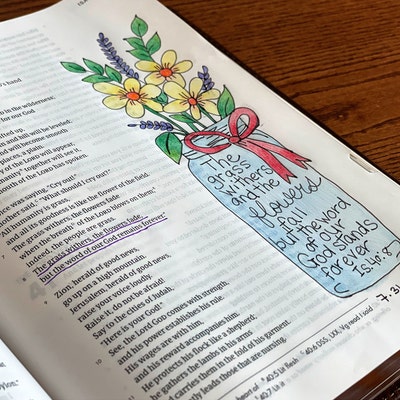 ISA
's hand
in the wilderness;
for our God
lifted up,
and hill will be leveled;
will become smooth
places, a plain.
of the LORD will appear,
humanity together will see it,
mouth of the LORD has spoken.
was saying, "Cry out!"
said, "What should I cry out?"
"All humanity is grass,
and all its goodness is like the flower of the field.
The grass withers, the flowers fade
when the breath of the LORD blows on them;
indeed, the people are grass.
The grass withers, the flowers fade,
but the word of our God remains forever."
Zion, herald of good news,
go up on a high mountain.
Jerusalem, herald of good news,
raise your voice loudly.
Raise it, do not be afraid!
Say to the cities of Judah,
"Here is your God!"
See, the Lord GOD comes with strength,
and his power establishes his rule.
His wages are with him,
and his reward accompanies him.
He protects his flock like a shepherd;
he gathers the lambs in his arms
and carries them in the fold of his garment.
leads those that are nursing.
40:5 Lit flesh 40:6 DSS, LXX, Vg read I said
40:7
The
grass
withers
and the
flowers
fall
but the word
of our
God stands
forever
Is. 40:8
7.31